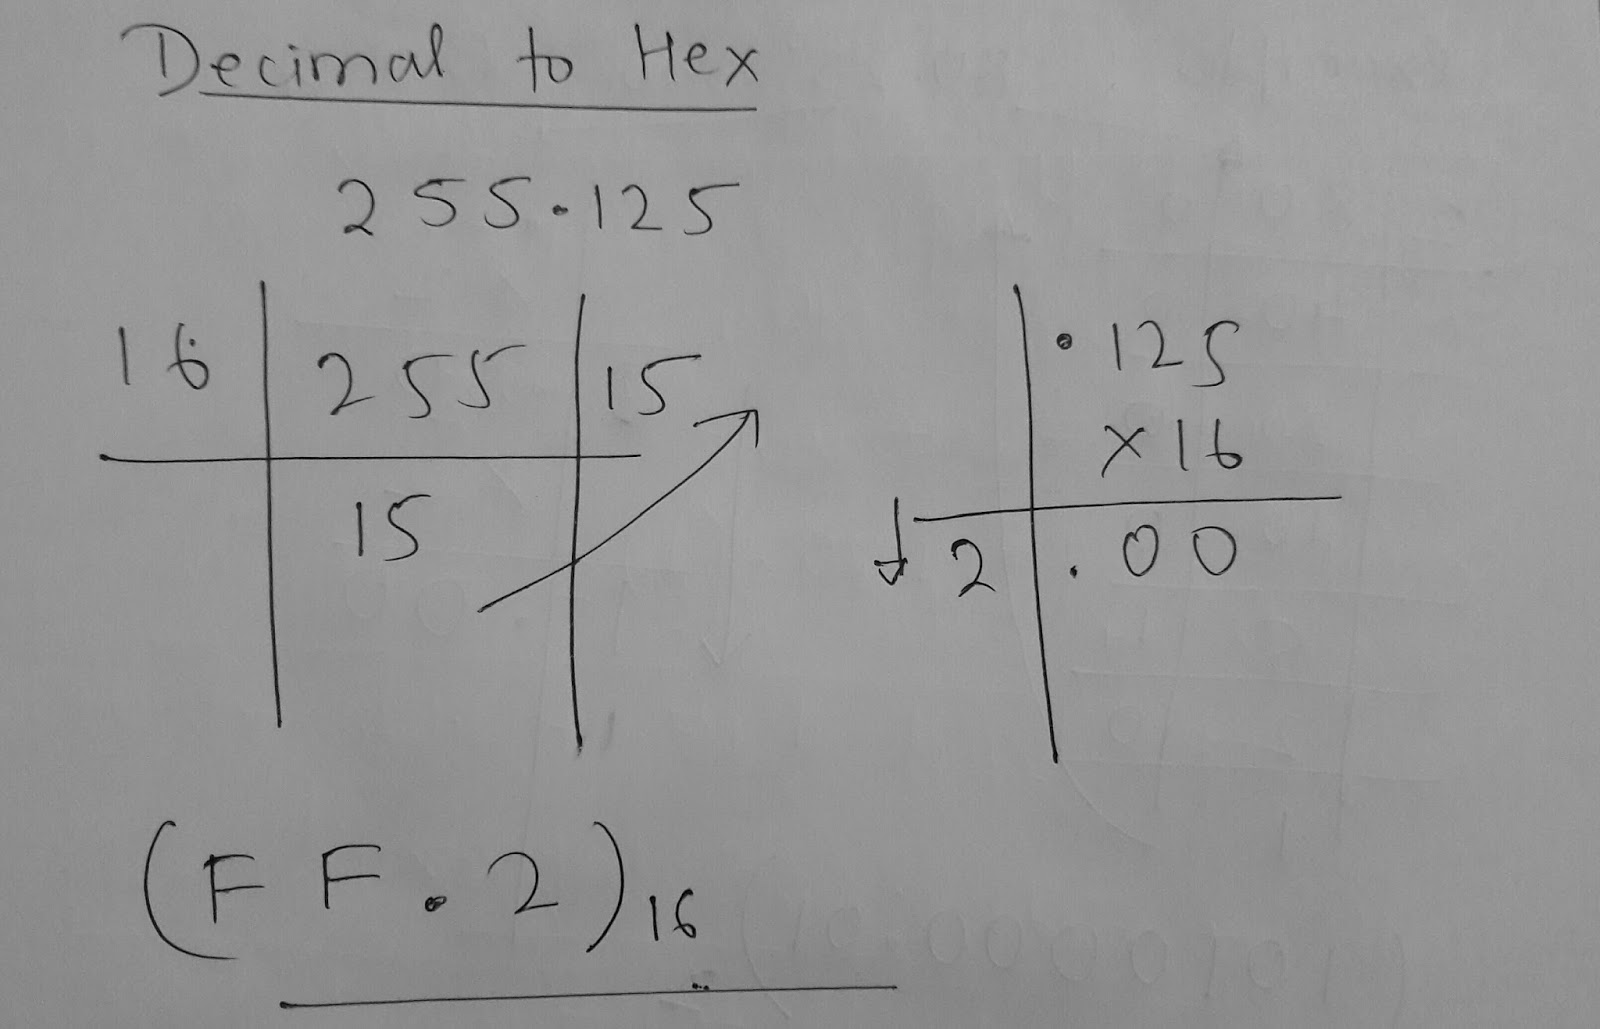 Decimal to Hex
255.125
16 255 15
15
.125
×16
2 .00
(FF.2)16